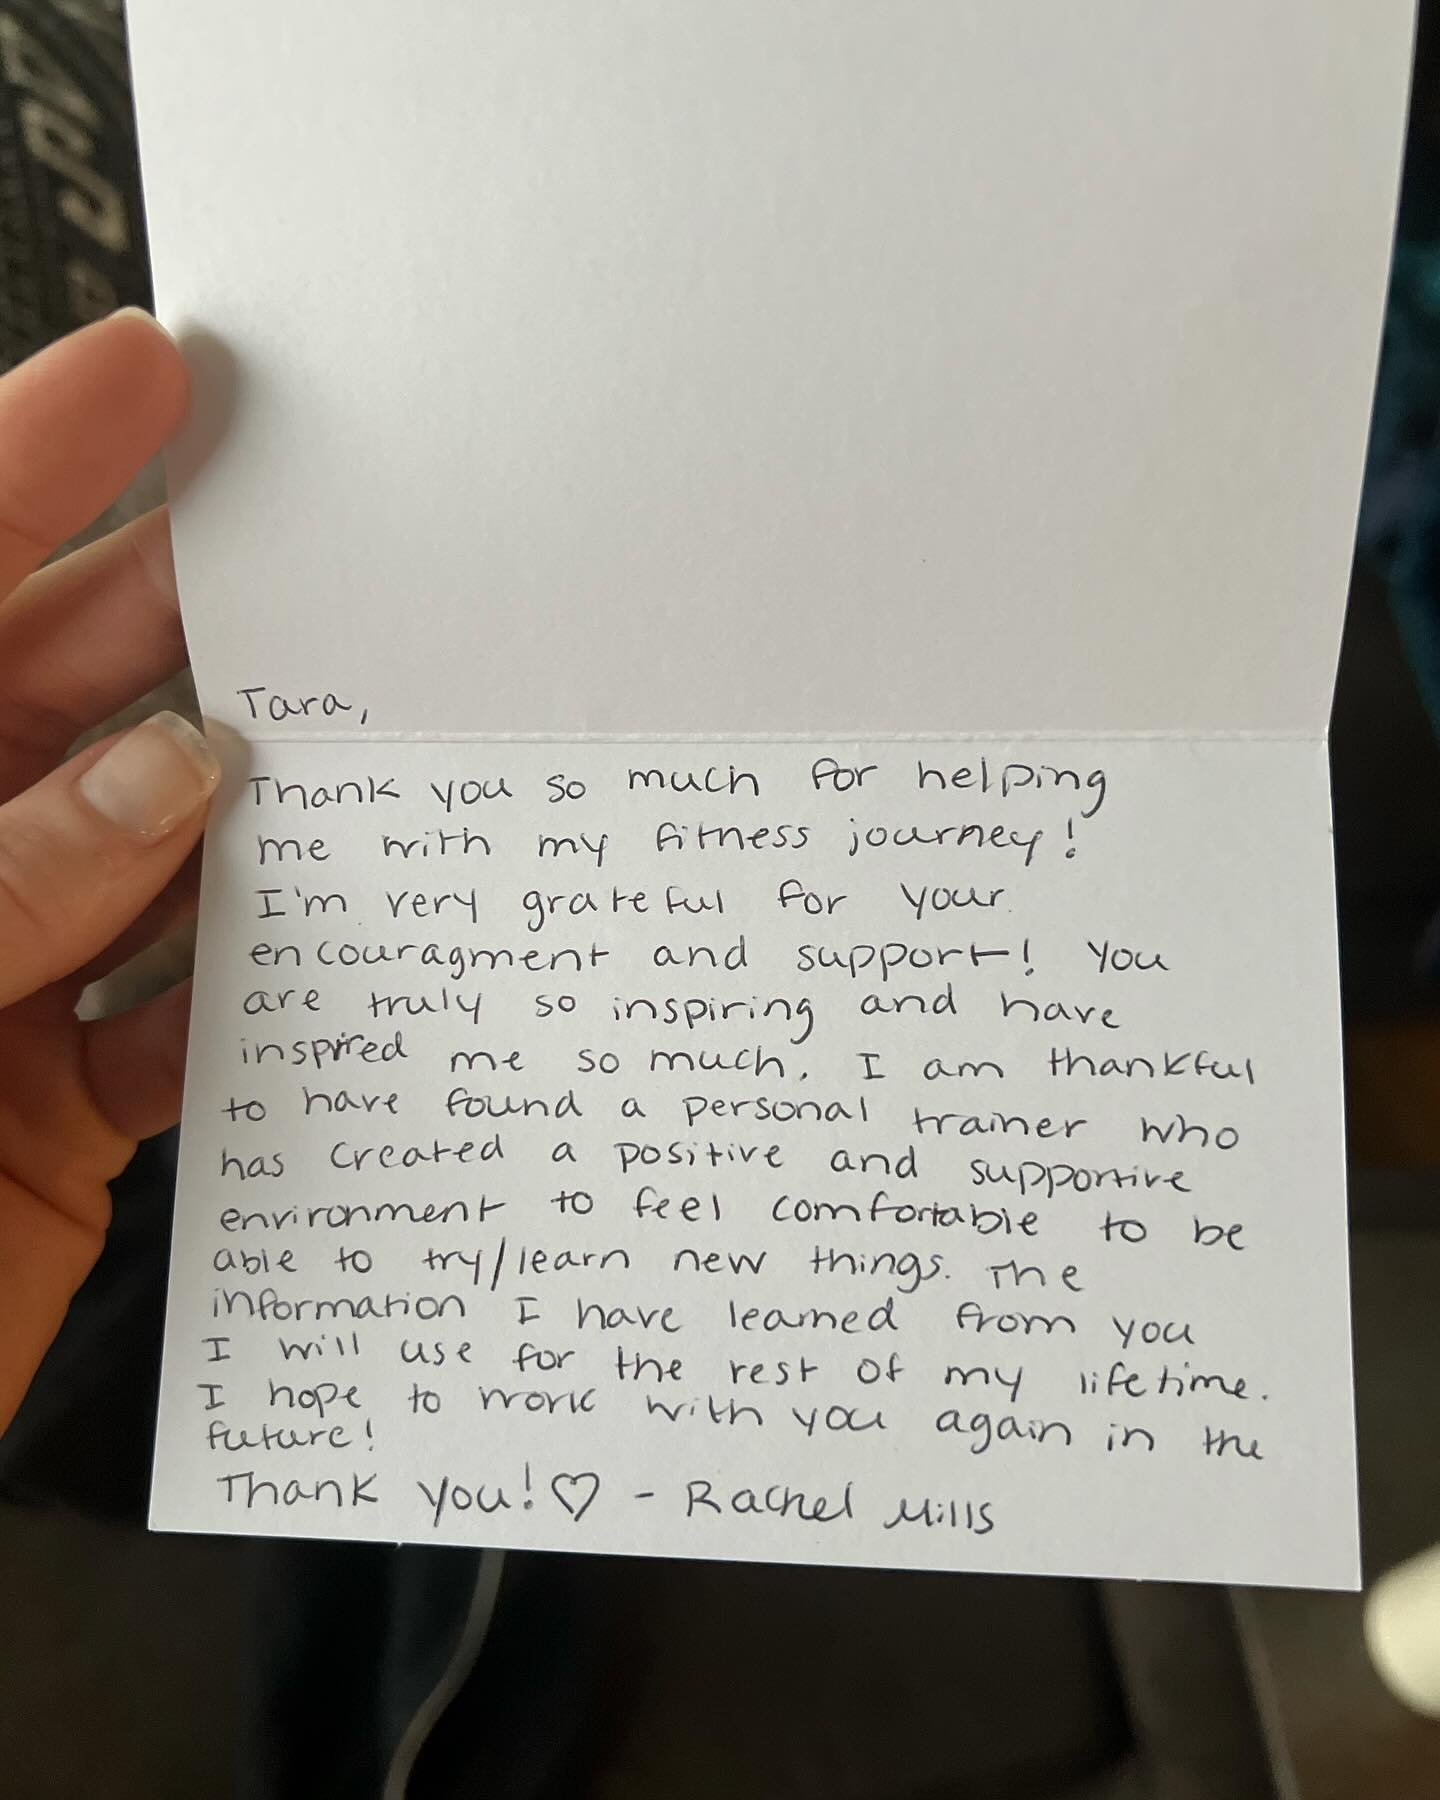 Tara,
Thank you so much for helping
me with my fitness journey!
I'm very grateful for your
encouragment and support! You
are truly so inspiring and have
inspired me so much. I am thankful
to have found a personal trainer who
has created a positive and supportive
environment to feel comfortable to be
able to try/learn new things. The
information I have learned from you
I will use for the rest of my lifetime.
I hope to work with you again in the
future!
Thank you! ♡ - Rachel Mills